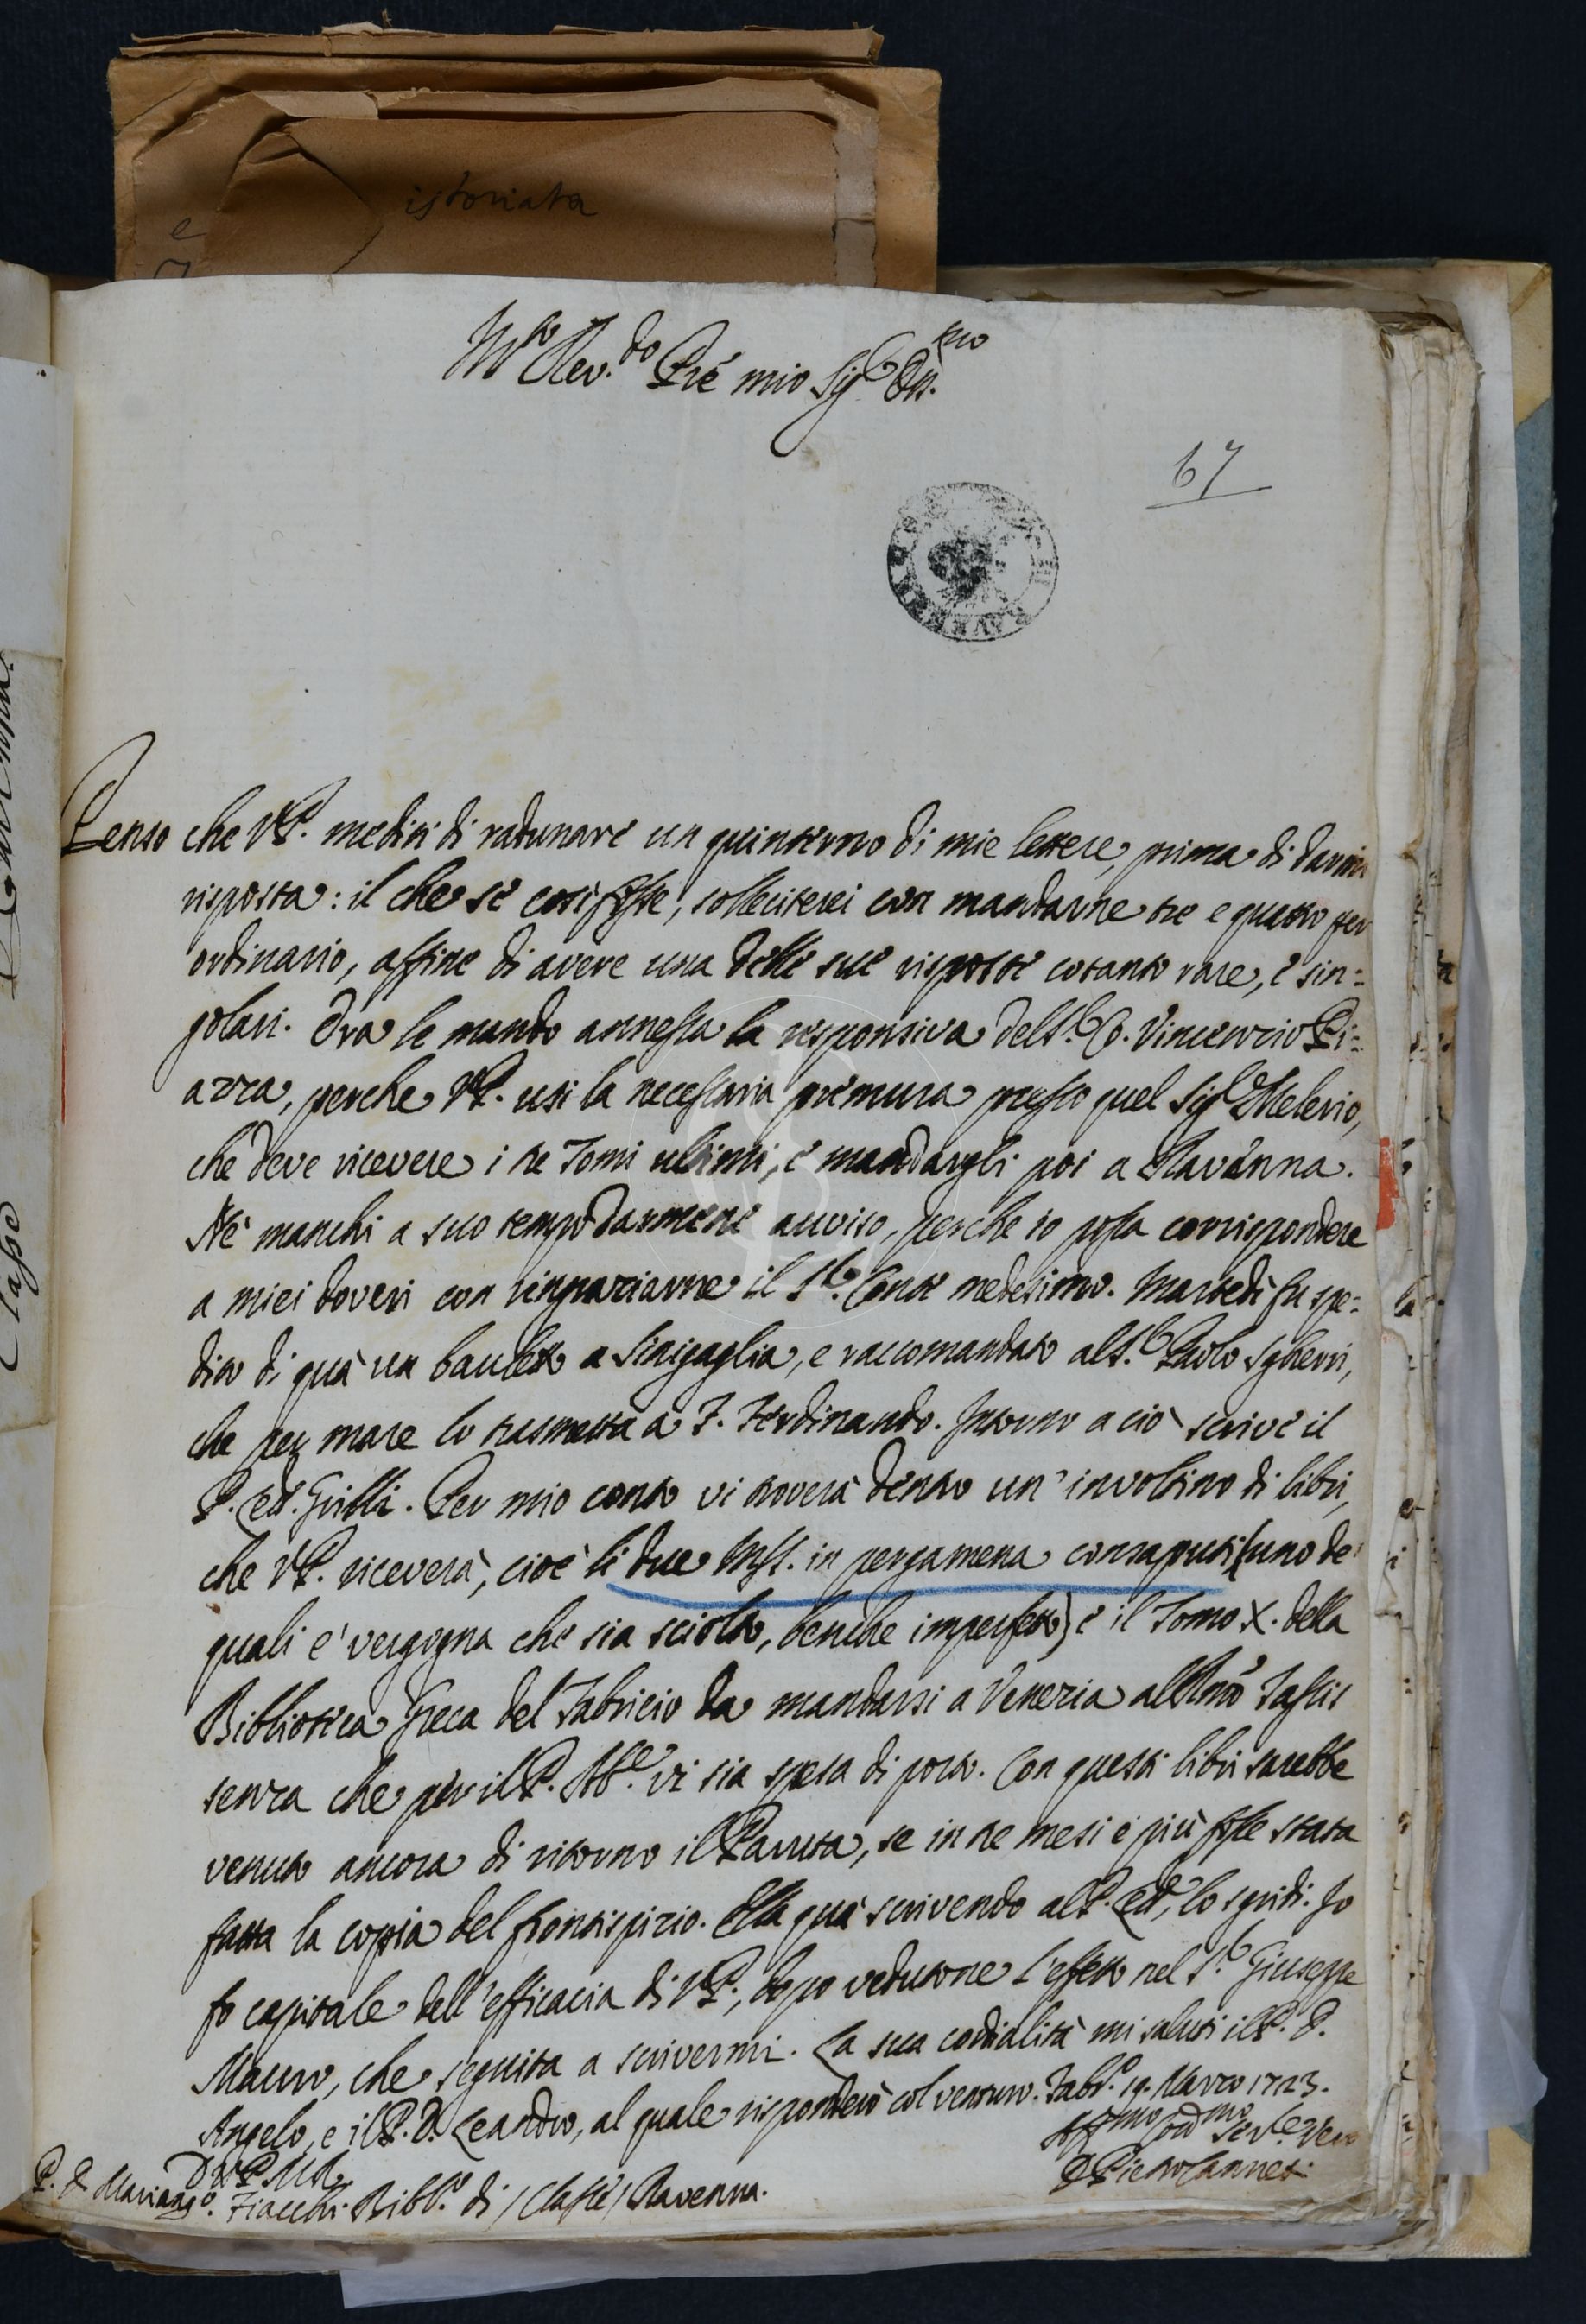 istoriata
M.to Rev.do Prē mio Sig.r Oss.mo
67
Penso che V.P. mediti di radunare un quinterno di mie lettere, prima di darmi
risposta: il che se così fosse, solleciterei con mandarne tre e quattro per
ordinario, affine di avere una delle sue risposte cotanto rare, e sin=
golari. Ora le mando annessa la responsiva del S.r Co. Vincenzio Pi=
azza, perche V.P. usi la necessaria premura presso quel Sig.r Melerio,
che deve ricevere i tre Tomi ultimi, e mandargli poi a Ravenna.
Nè manchi a suo tempo darmene avviso, perche io possa corrispondere
a miei doveri con ringraziarne il S.r Conte medesimo. Martedì fu spe=
dito di quà un bauletto a Sinigaglia, e raccomandato al S.r Paolo Sgherri,
che per mare lo trasmetta a F. Ferdinando. Intorno a ciò scrive il
P. Ed. Grilli. Per mio conto vi troverà dentro un' involtino di libri,
che V.P. riceverà, cioè li due Mss. in pergamena consaputi (uno de'
quali e' vergogna che sia sciolto, benche imperfetto) e il Tomo X. della
Biblioteca Greca del Fabricio da mandarsi a Venezia al Rmō
senza che per il P. Ab.e vi sia spesa di porto. Con questi libri sarebbe
venuto ancora di ritorno il Paruta, se in tre mesi e più fosse stata
fatta la copia del frontispizio. Ella quà scrivendo al P. Ed, lo sgridi. Io
fo capitale dell'efficacia di V.P., dopo vedutone l'effetto nel S.r Giuseppe
Mauro, che seguita a scrivermi. La sua cordialità mi saluti il P. D.
Angelo, e il P. D. Leandro, al quale risponderò col venturo. Fabr.o 19. Marzo 1723.
D V. P. M. R.
Aff.mo Serv.e Vero
D Pietro Canneti
P. D Mariang.o Fiacchi Bibl.o di Classe Ravenna.